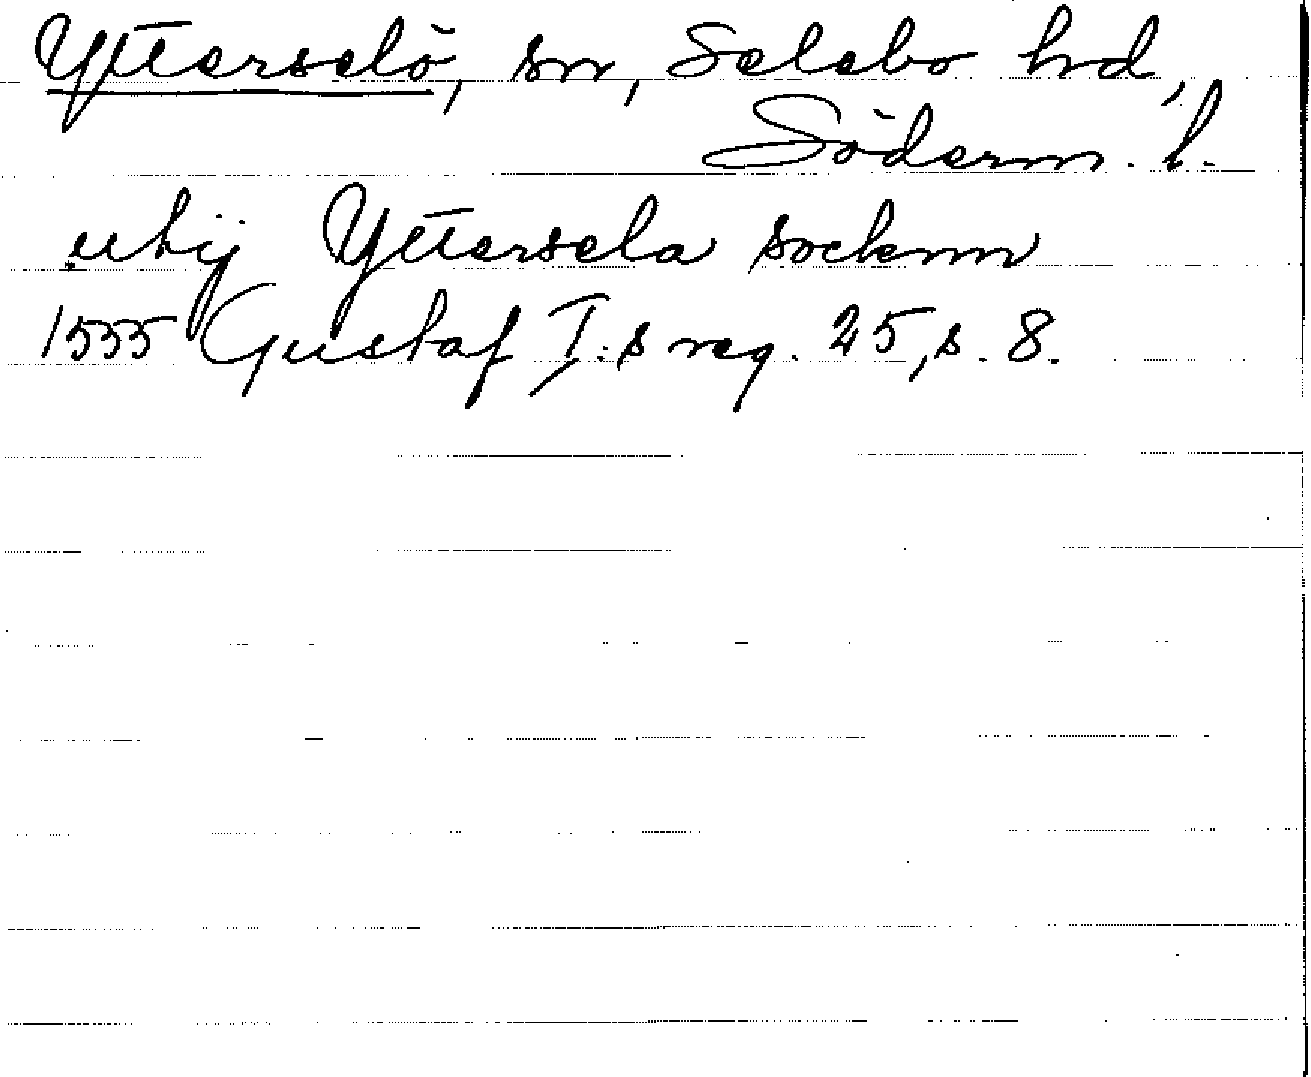 Ytterselö, sn, Selebo hrd,
Söderm. l.
uthij Yttersela socknn
1555 Gustaf I:s reg. 25, s. 8.